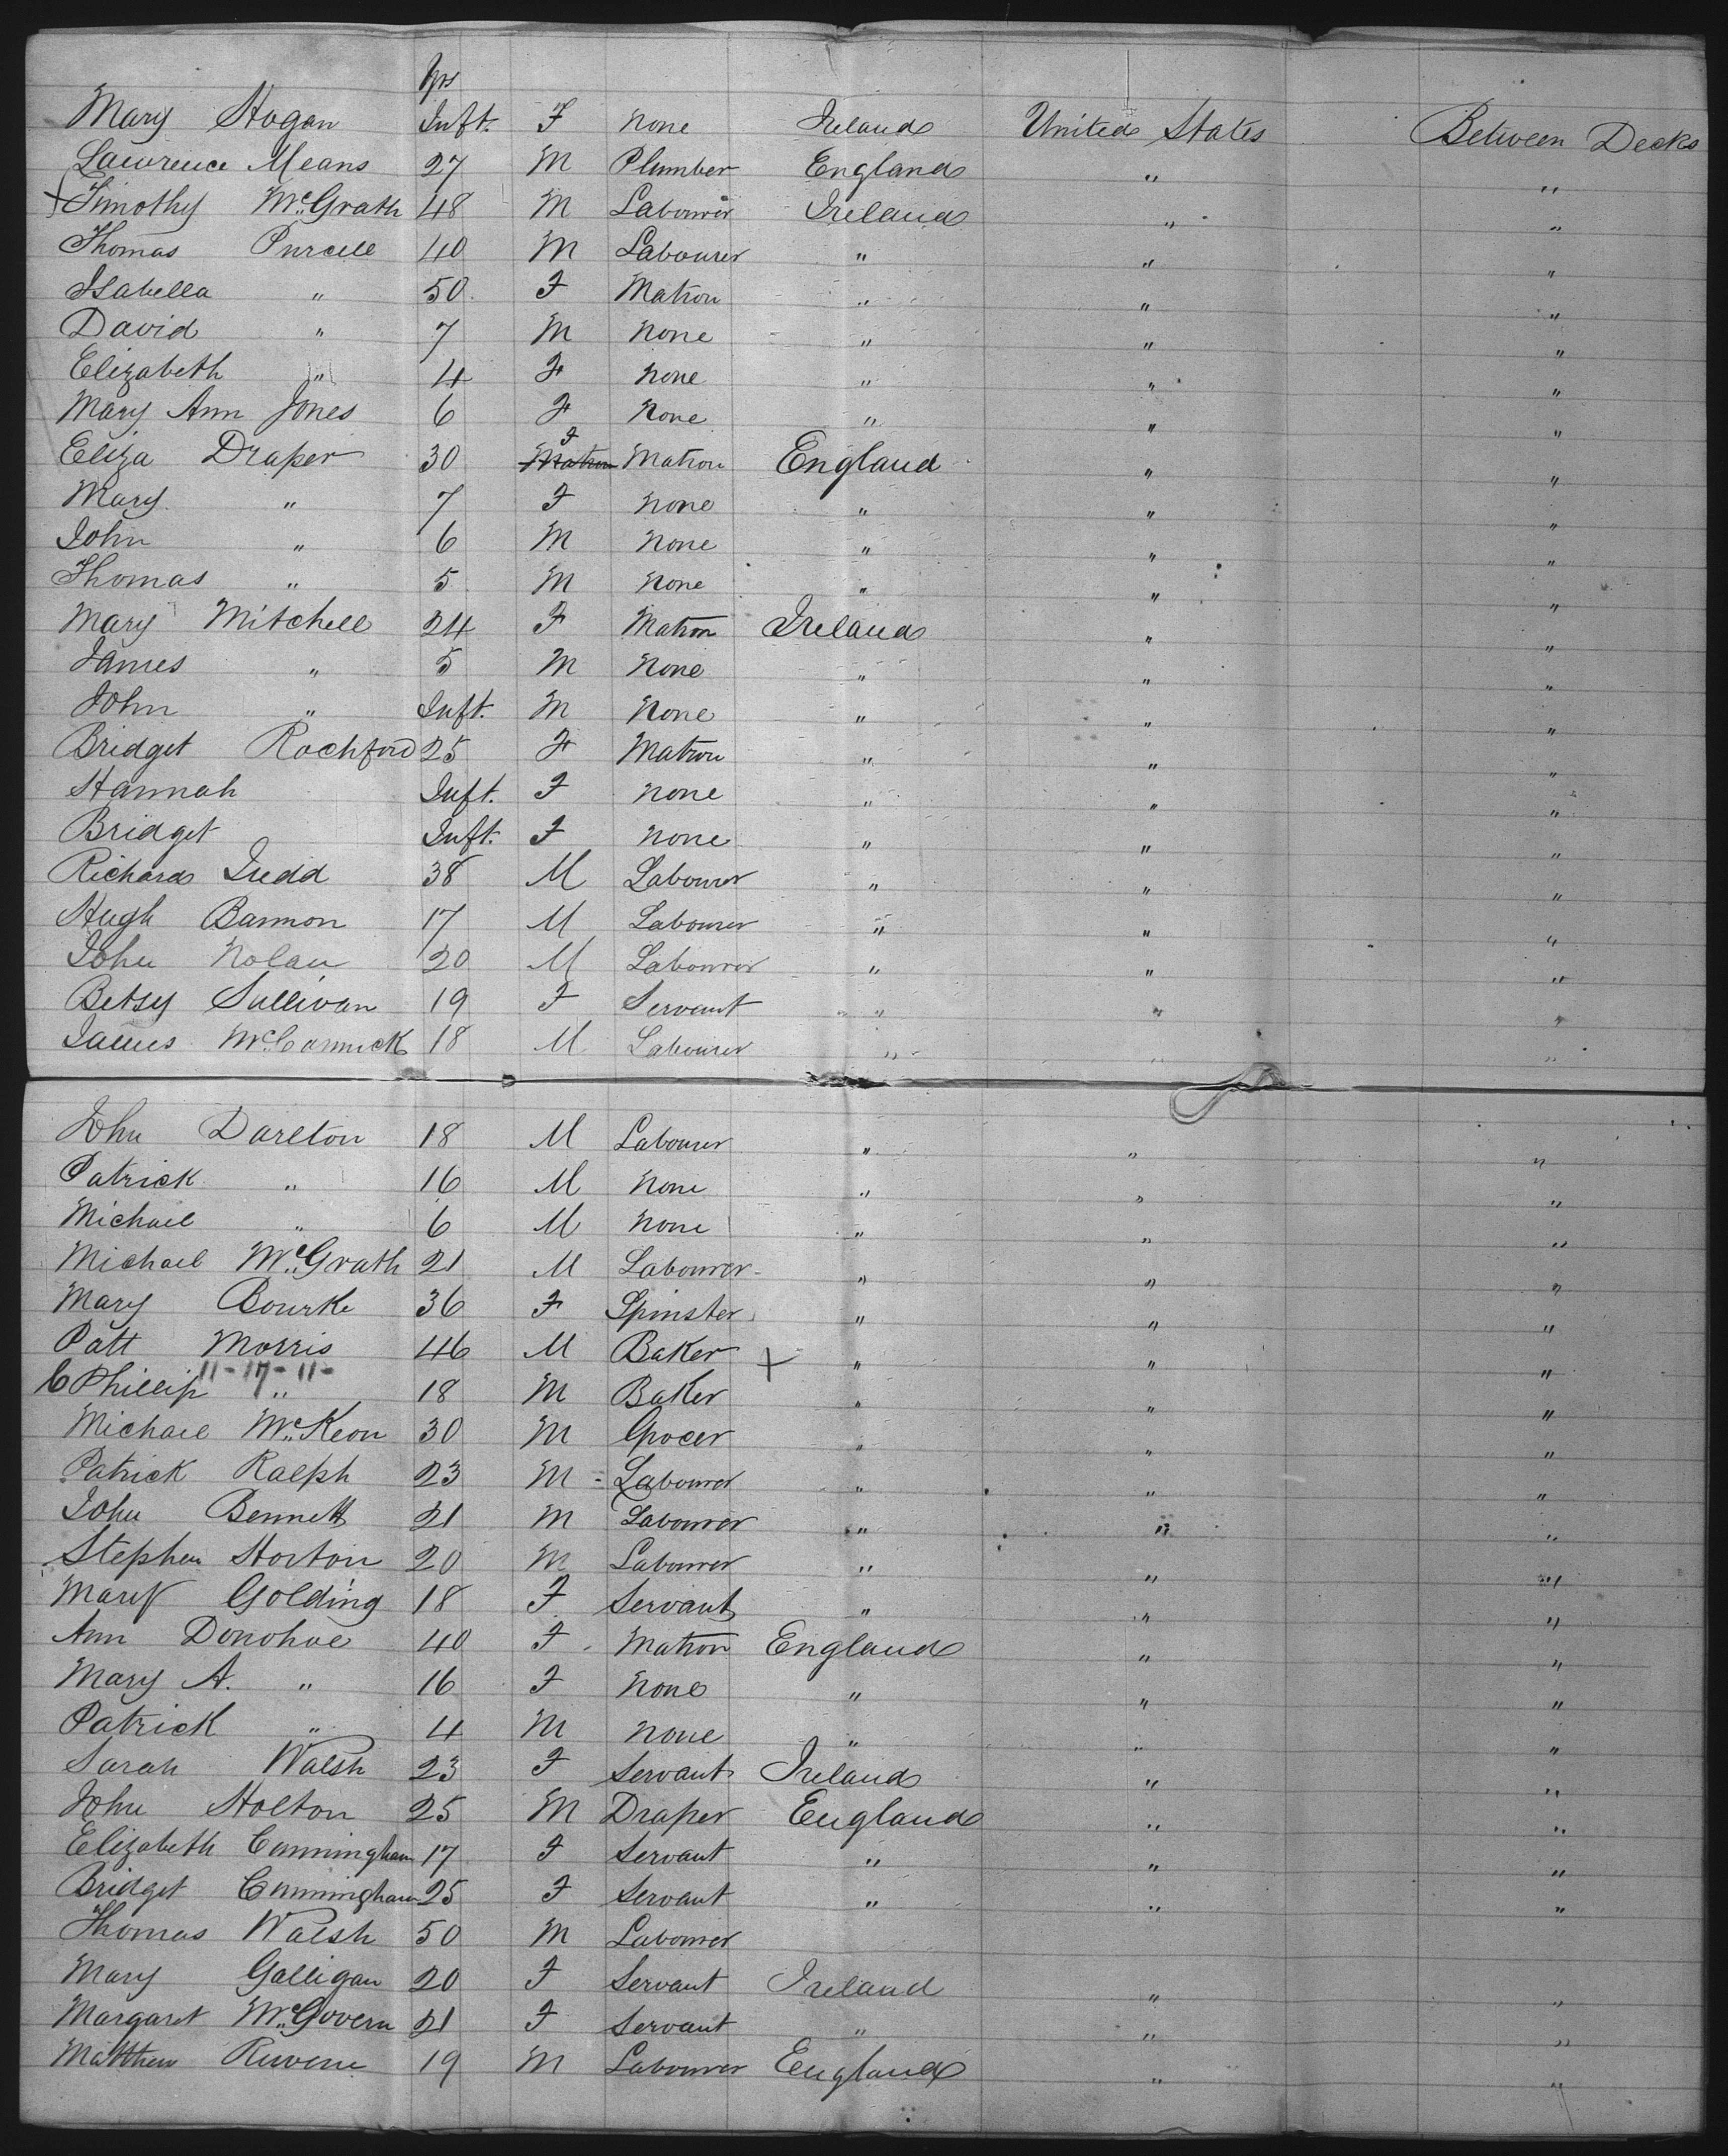 Yrs
Mary Hogan Inft. F None Ireland United States Between Decks
Lawrence Means 27 M Plumber England " "
Timothy McGrath 48 M Labourer Ireland " "
Thomas Purcell 40 M Labourer " " "
Isabella " 50 F Matron " " "
David " 7 M None " " "
Elizabeth " 4 F None " " "
Mary Ann Jones 6 F None " " "
Eliza Draper 30 F Matron Matron England " "
Mary " 7 F None " " "
John " 6 M None " " "
Thomas " 5 M None " " "
Mary Mitchell 24 F Matron Ireland " "
James " 5 M None " " "
John " Inft. M None " " "
Bridget Rochford 25 F Matron " " "
Hannah Inft. F None " " "
Bridget Inft. F None " " "
Richard Judd 38 M Labourer " " "
Hugh Bannon 17 M Labourer " " "
John Nolan 20 M Labourer " " "
Betsy Sullivan 19 F Servant " " "
James McCormick 18 M Labourer " " "
John Darlton 18 M Labourer " " "
Patrick " 16 M None " " "
Michael " 6 M None " " "
Michael McGrath 21 M Labourer " " "
Mary Bourke 36 F Spinster " " "
Patt Morris 46 M Baker X " " "
11-17-11-
Phillip " 18 M Baker " " "
Michael McKeon 30 M Grocer " " "
Patrick Ralph 23 M Labourer " " "
John Bennett 21 M Labourer " " "
Stephen Horton 20 M Labourer " " "
Mary Golding 18 F Servant " " "
Ann Donohoe 40 F Matron England " "
Mary A. " 16 F None " " "
Patrick " 4 M None " " "
Sarah Walsh 23 F Servant Ireland " "
John Holton 25 M Draper England " "
Elizabeth Cunningham 17 F Servant " " "
Bridget Cunningham 25 F Servant " " "
Thomas Walsh 50 M Labourer
Mary Galligan 20 F Servant Ireland " "
Margaret McGovern 21 F Servant " " "
Matthew 19 M Labourer England " "